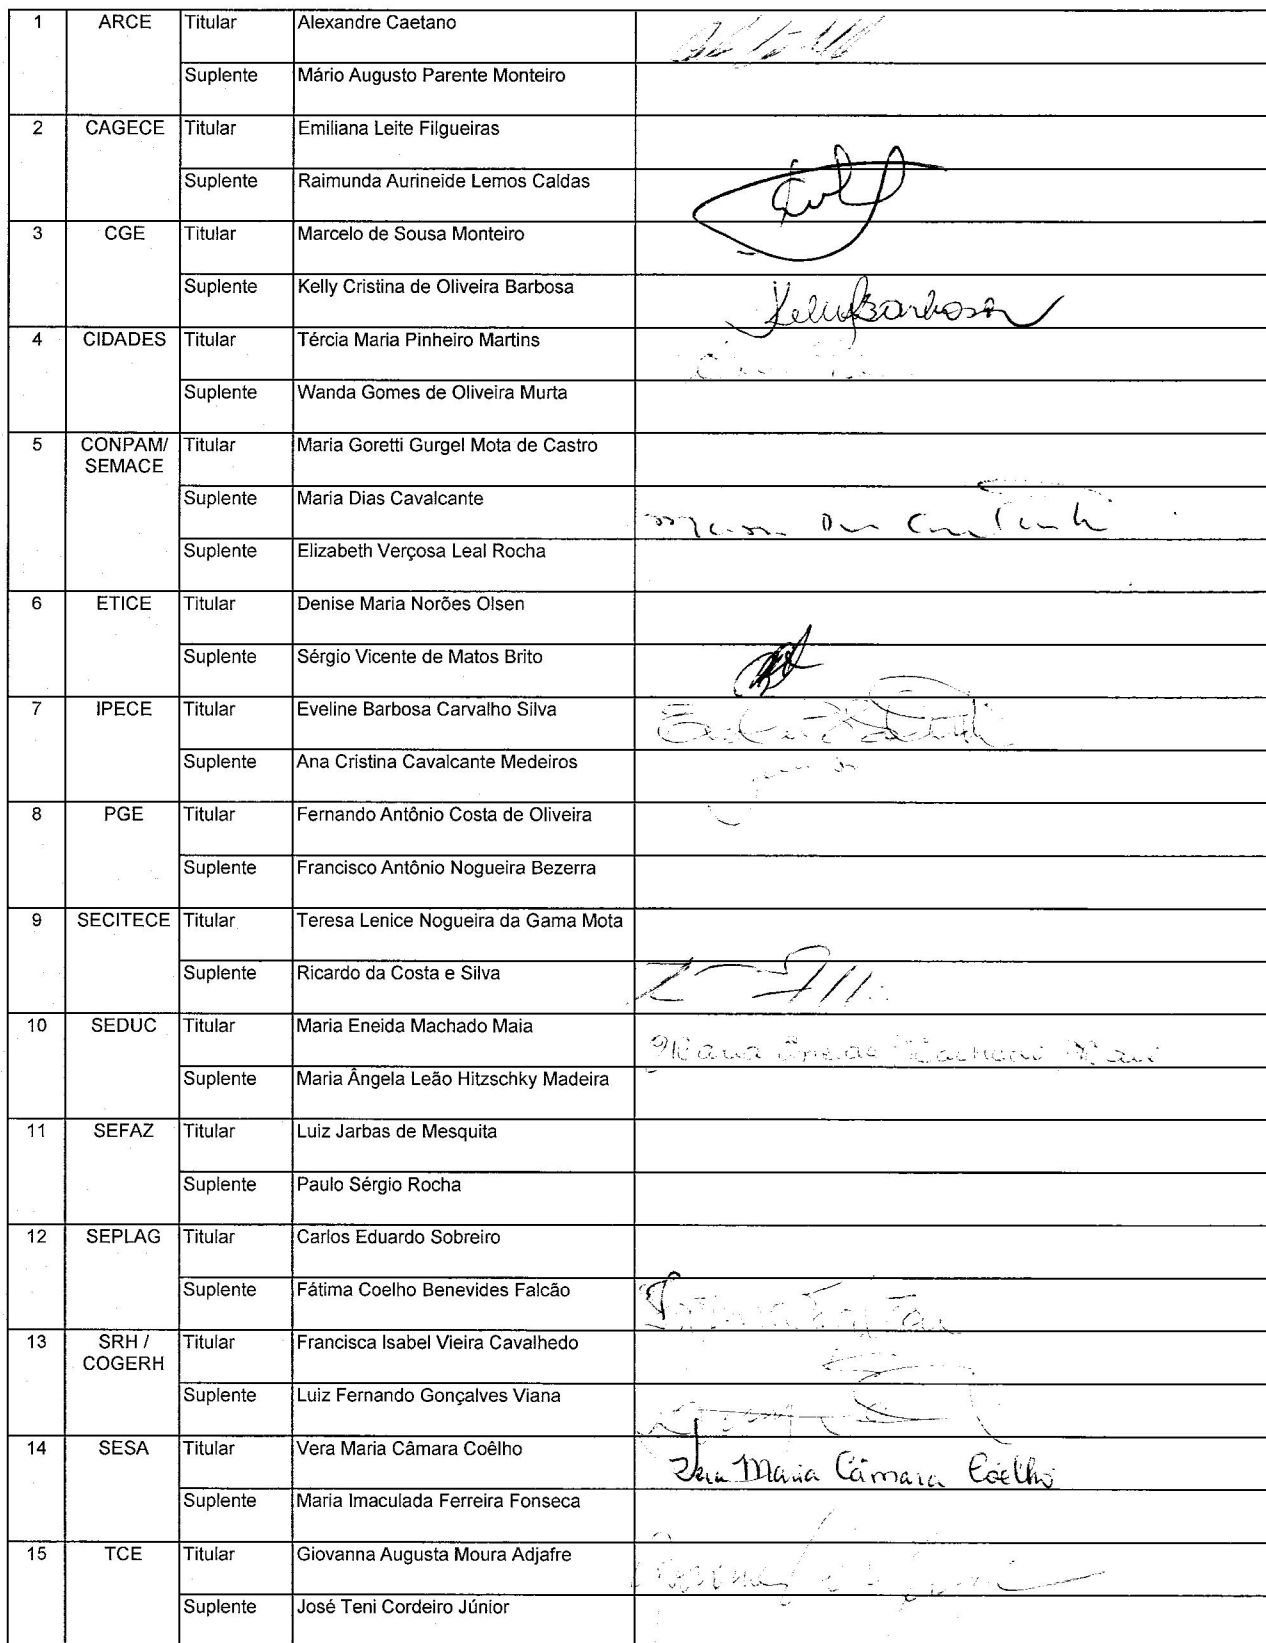 1 ARCE Titular Alexandre Caetano
Suplente Mário Augusto Parente Monteiro
2 CAGECE Titular Emiliana Leite Filgueiras
Suplente Raimunda Aurineide Lemos Caldas
3 CGE Titular Marcelo de Sousa Monteiro
Suplente Kelly Cristina de Oliveira Barbosa Kelly Barbosa
4 CIDADES Titular Tércia Maria Pinheiro Martins
Suplente Wanda Gomes de Oliveira Murta
5 CONPAM/ Titular Maria Goretti Gurgel Mota de Castro
SEMACE
Suplente Maria Dias Cavalcante
Suplente Elizabeth Verçosa Leal Rocha
6 ETICE Titular Denise Maria Norões Olsen
Suplente Sérgio Vicente de Matos Brito
7 IPECE Titular Eveline Barbosa Carvalho Silva
Suplente Ana Cristina Cavalcante Medeiros
8 PGE Titular Fernando Antônio Costa de Oliveira
Suplente Francisco Antônio Nogueira Bezerra
9 SECITECE Titular Teresa Lenice Nogueira da Gama Mota
Suplente Ricardo da Costa e Silva
10 SEDUC Titular Maria Eneida Machado Maia
Suplente Maria Ângela Leão Hitzschky Madeira
11 SEFAZ Titular Luiz Jarbas de Mesquita
Suplente Paulo Sérgio Rocha
12 SEPLAG Titular Carlos Eduardo Sobreiro
Suplente Fátima Coelho Benevides Falcão
13 SRH / Titular Francisca Isabel Vieira Cavalhedo
COGERH
Suplente Luiz Fernando Gonçalves Viana
14 SESA Titular Vera Maria Câmara Coêlho Vera Maria Câmara Coêlho
Suplente Maria Imaculada Ferreira Fonseca
15 TCE Titular Giovanna Augusta Moura Adjafre
Suplente José Teni Cordeiro Júnior